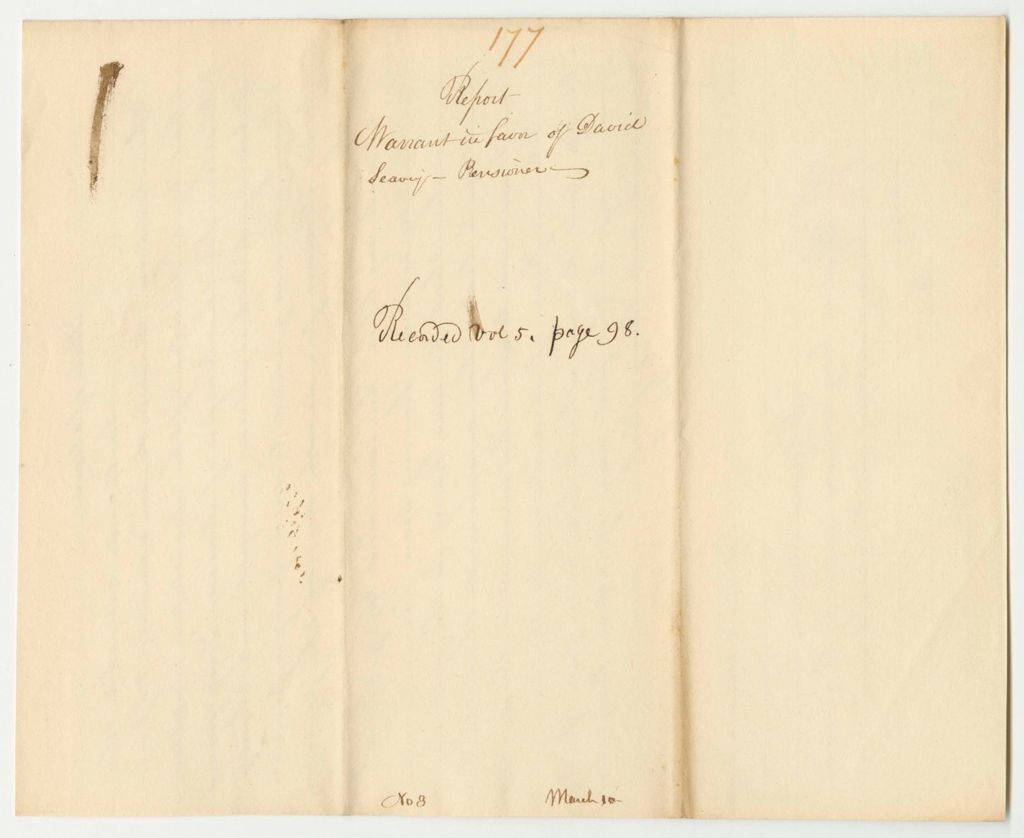 177
Report
Warrant in favor of David
Seavey - Pensioner
Recorded vol 5. page 98.
No 3 March 10